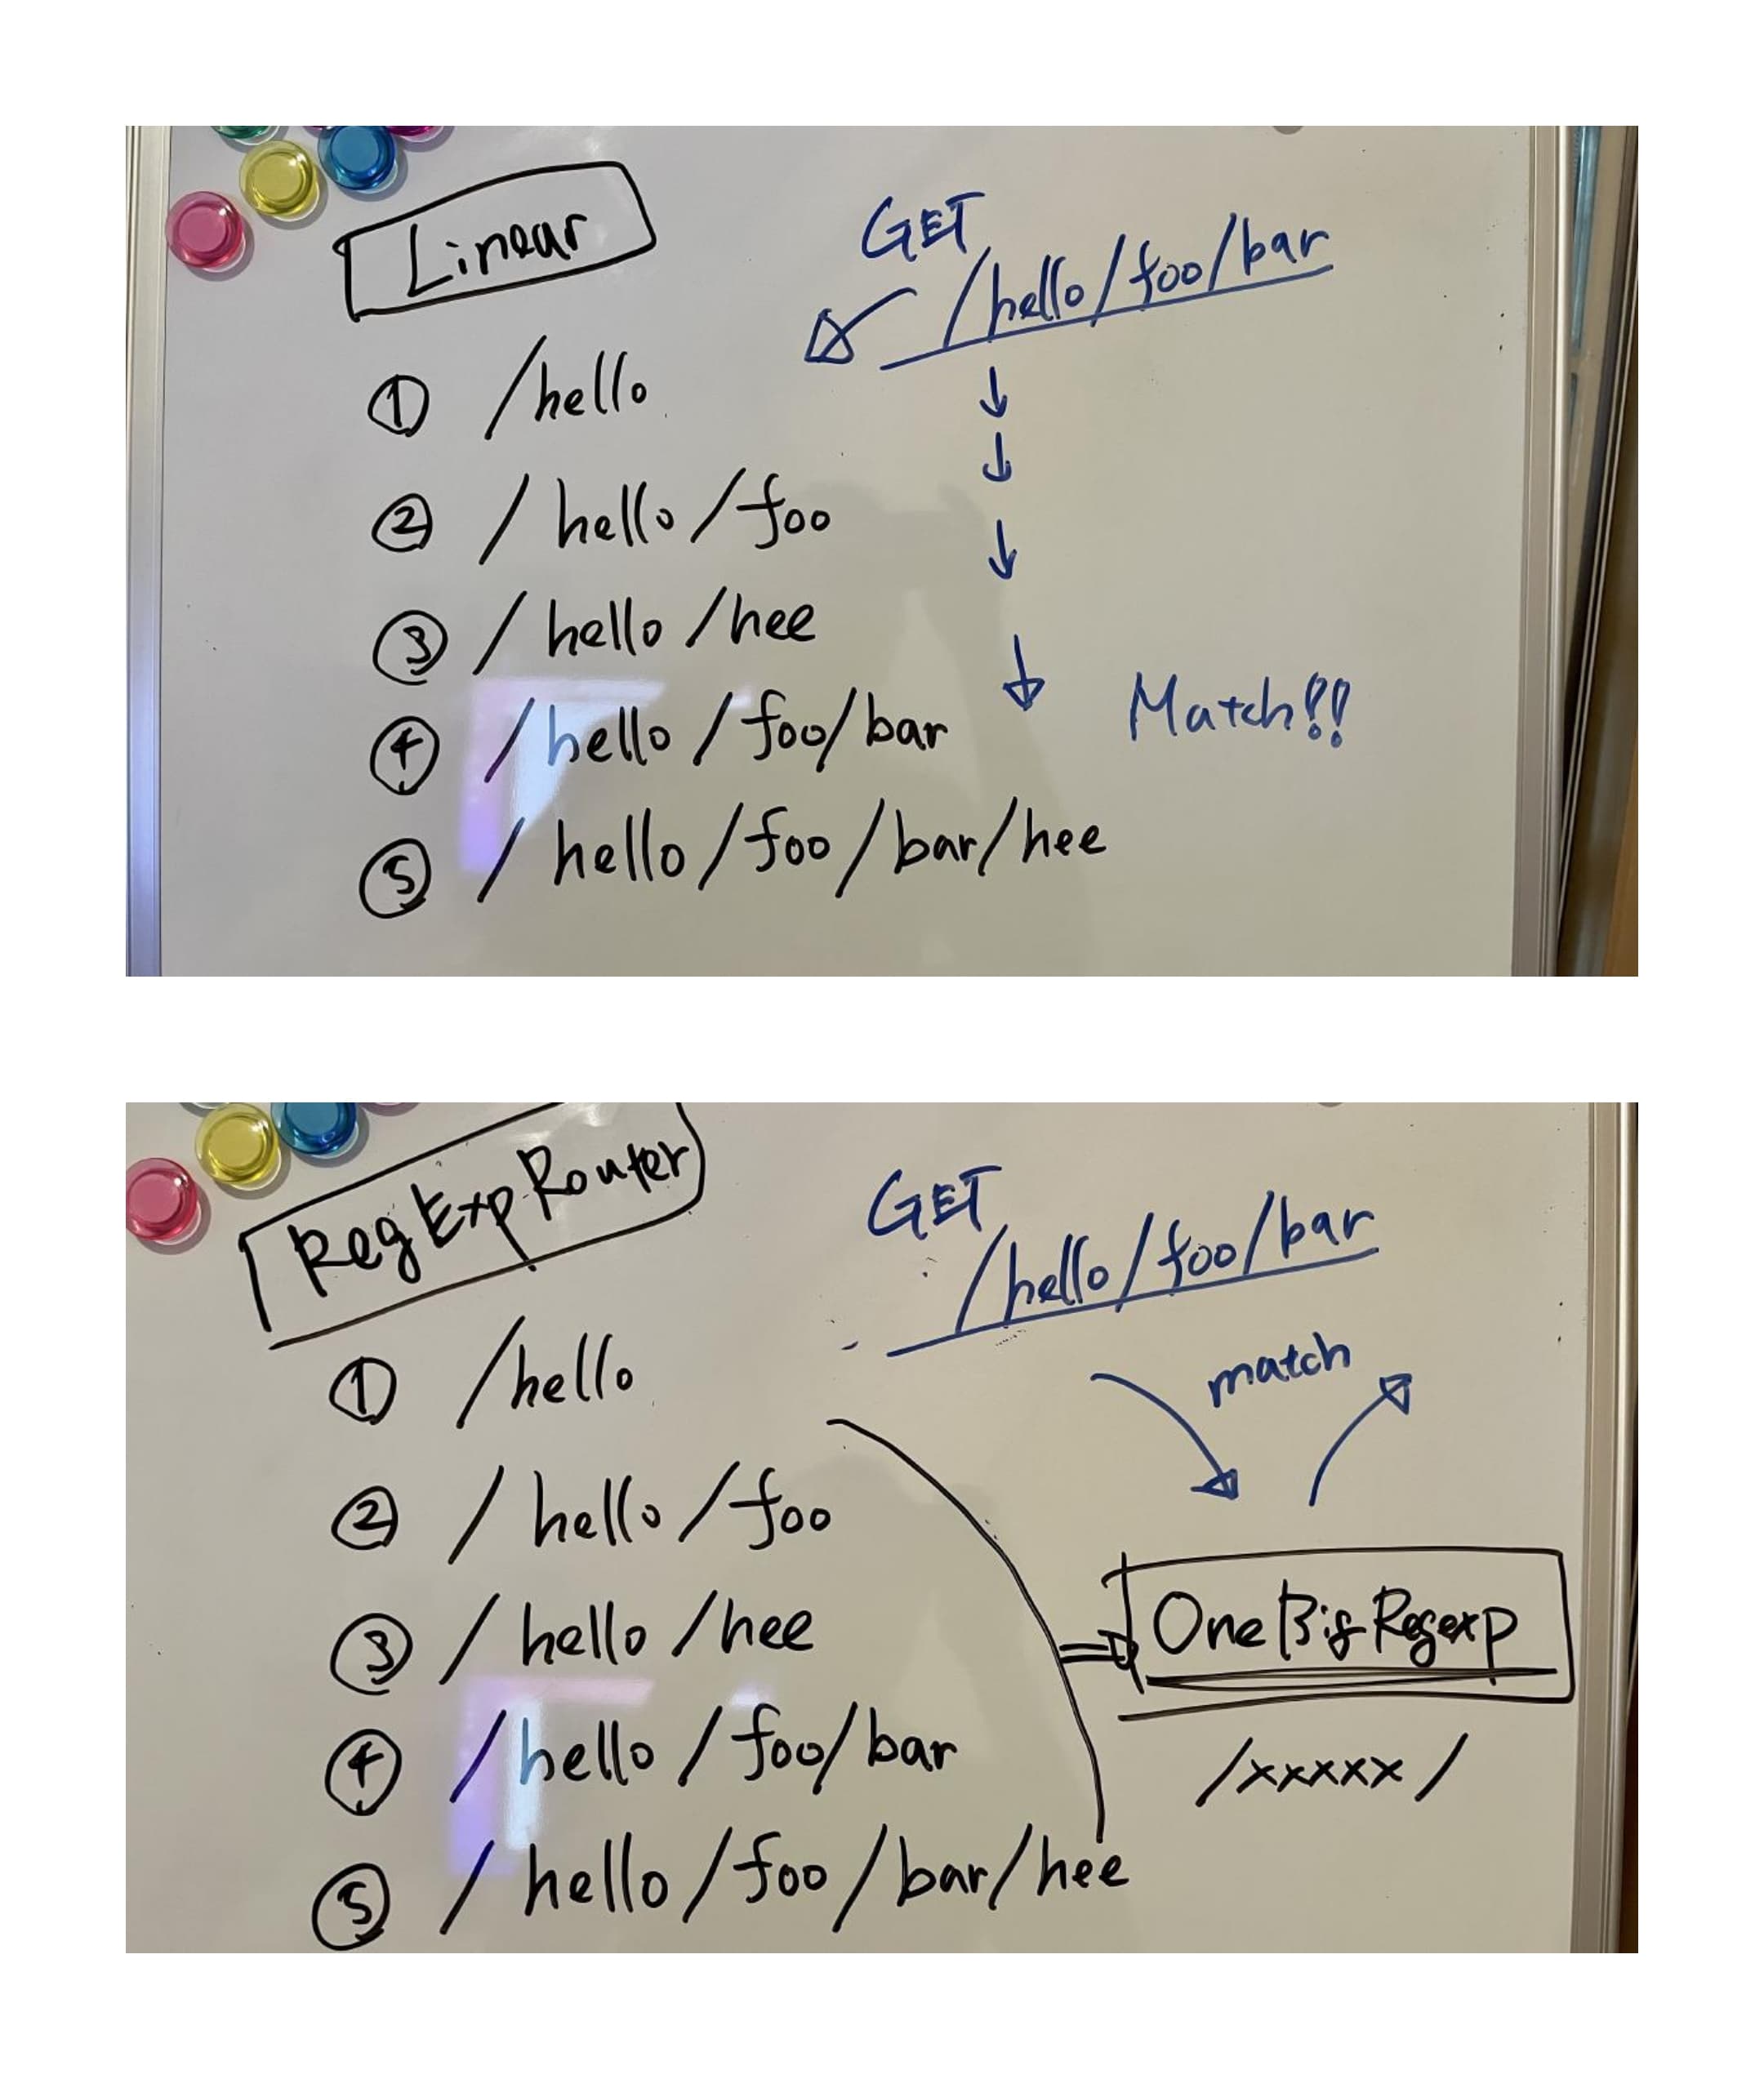 Linear
GET
/hello/foo/bar
① /hello
② /hello/foo
③ /hello/hee
④ /hello/foo/bar
Match!!
⑤ /hello/foo/bar/hee
RegExpRouter
GET
/hello/foo/bar
match
① /hello
② /hello/foo
③ /hello/hee
OneBigRegexp
④ /hello/foo/bar
/xxxxx/
⑤ /hello/foo/bar/hee